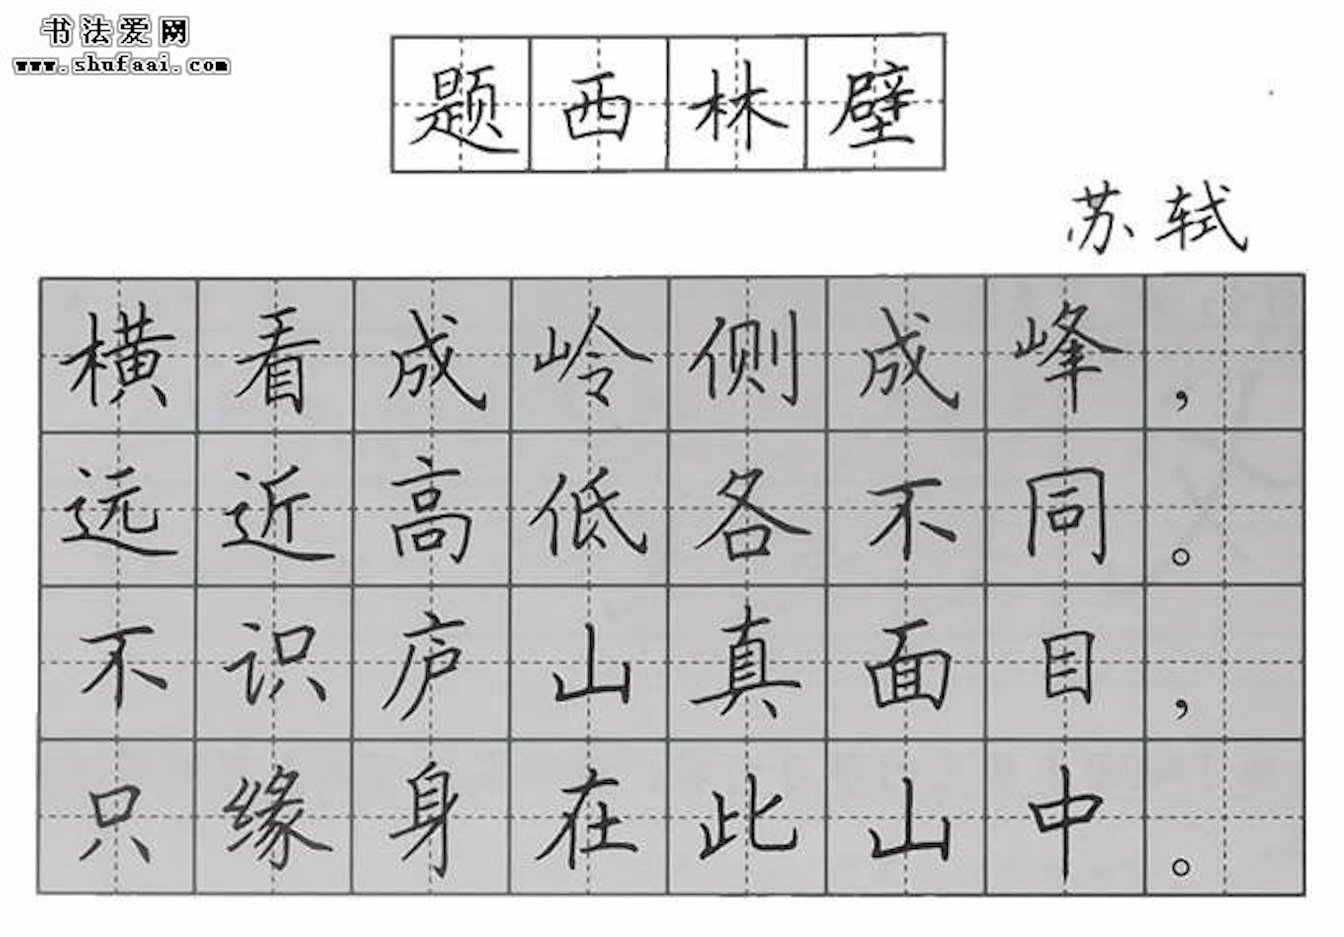 书法爱网
www.shufaai.com
题西林壁
苏轼
横看成岭侧成峰，
远近高低各不同。
不识庐山真面目，
只缘身在此山中。